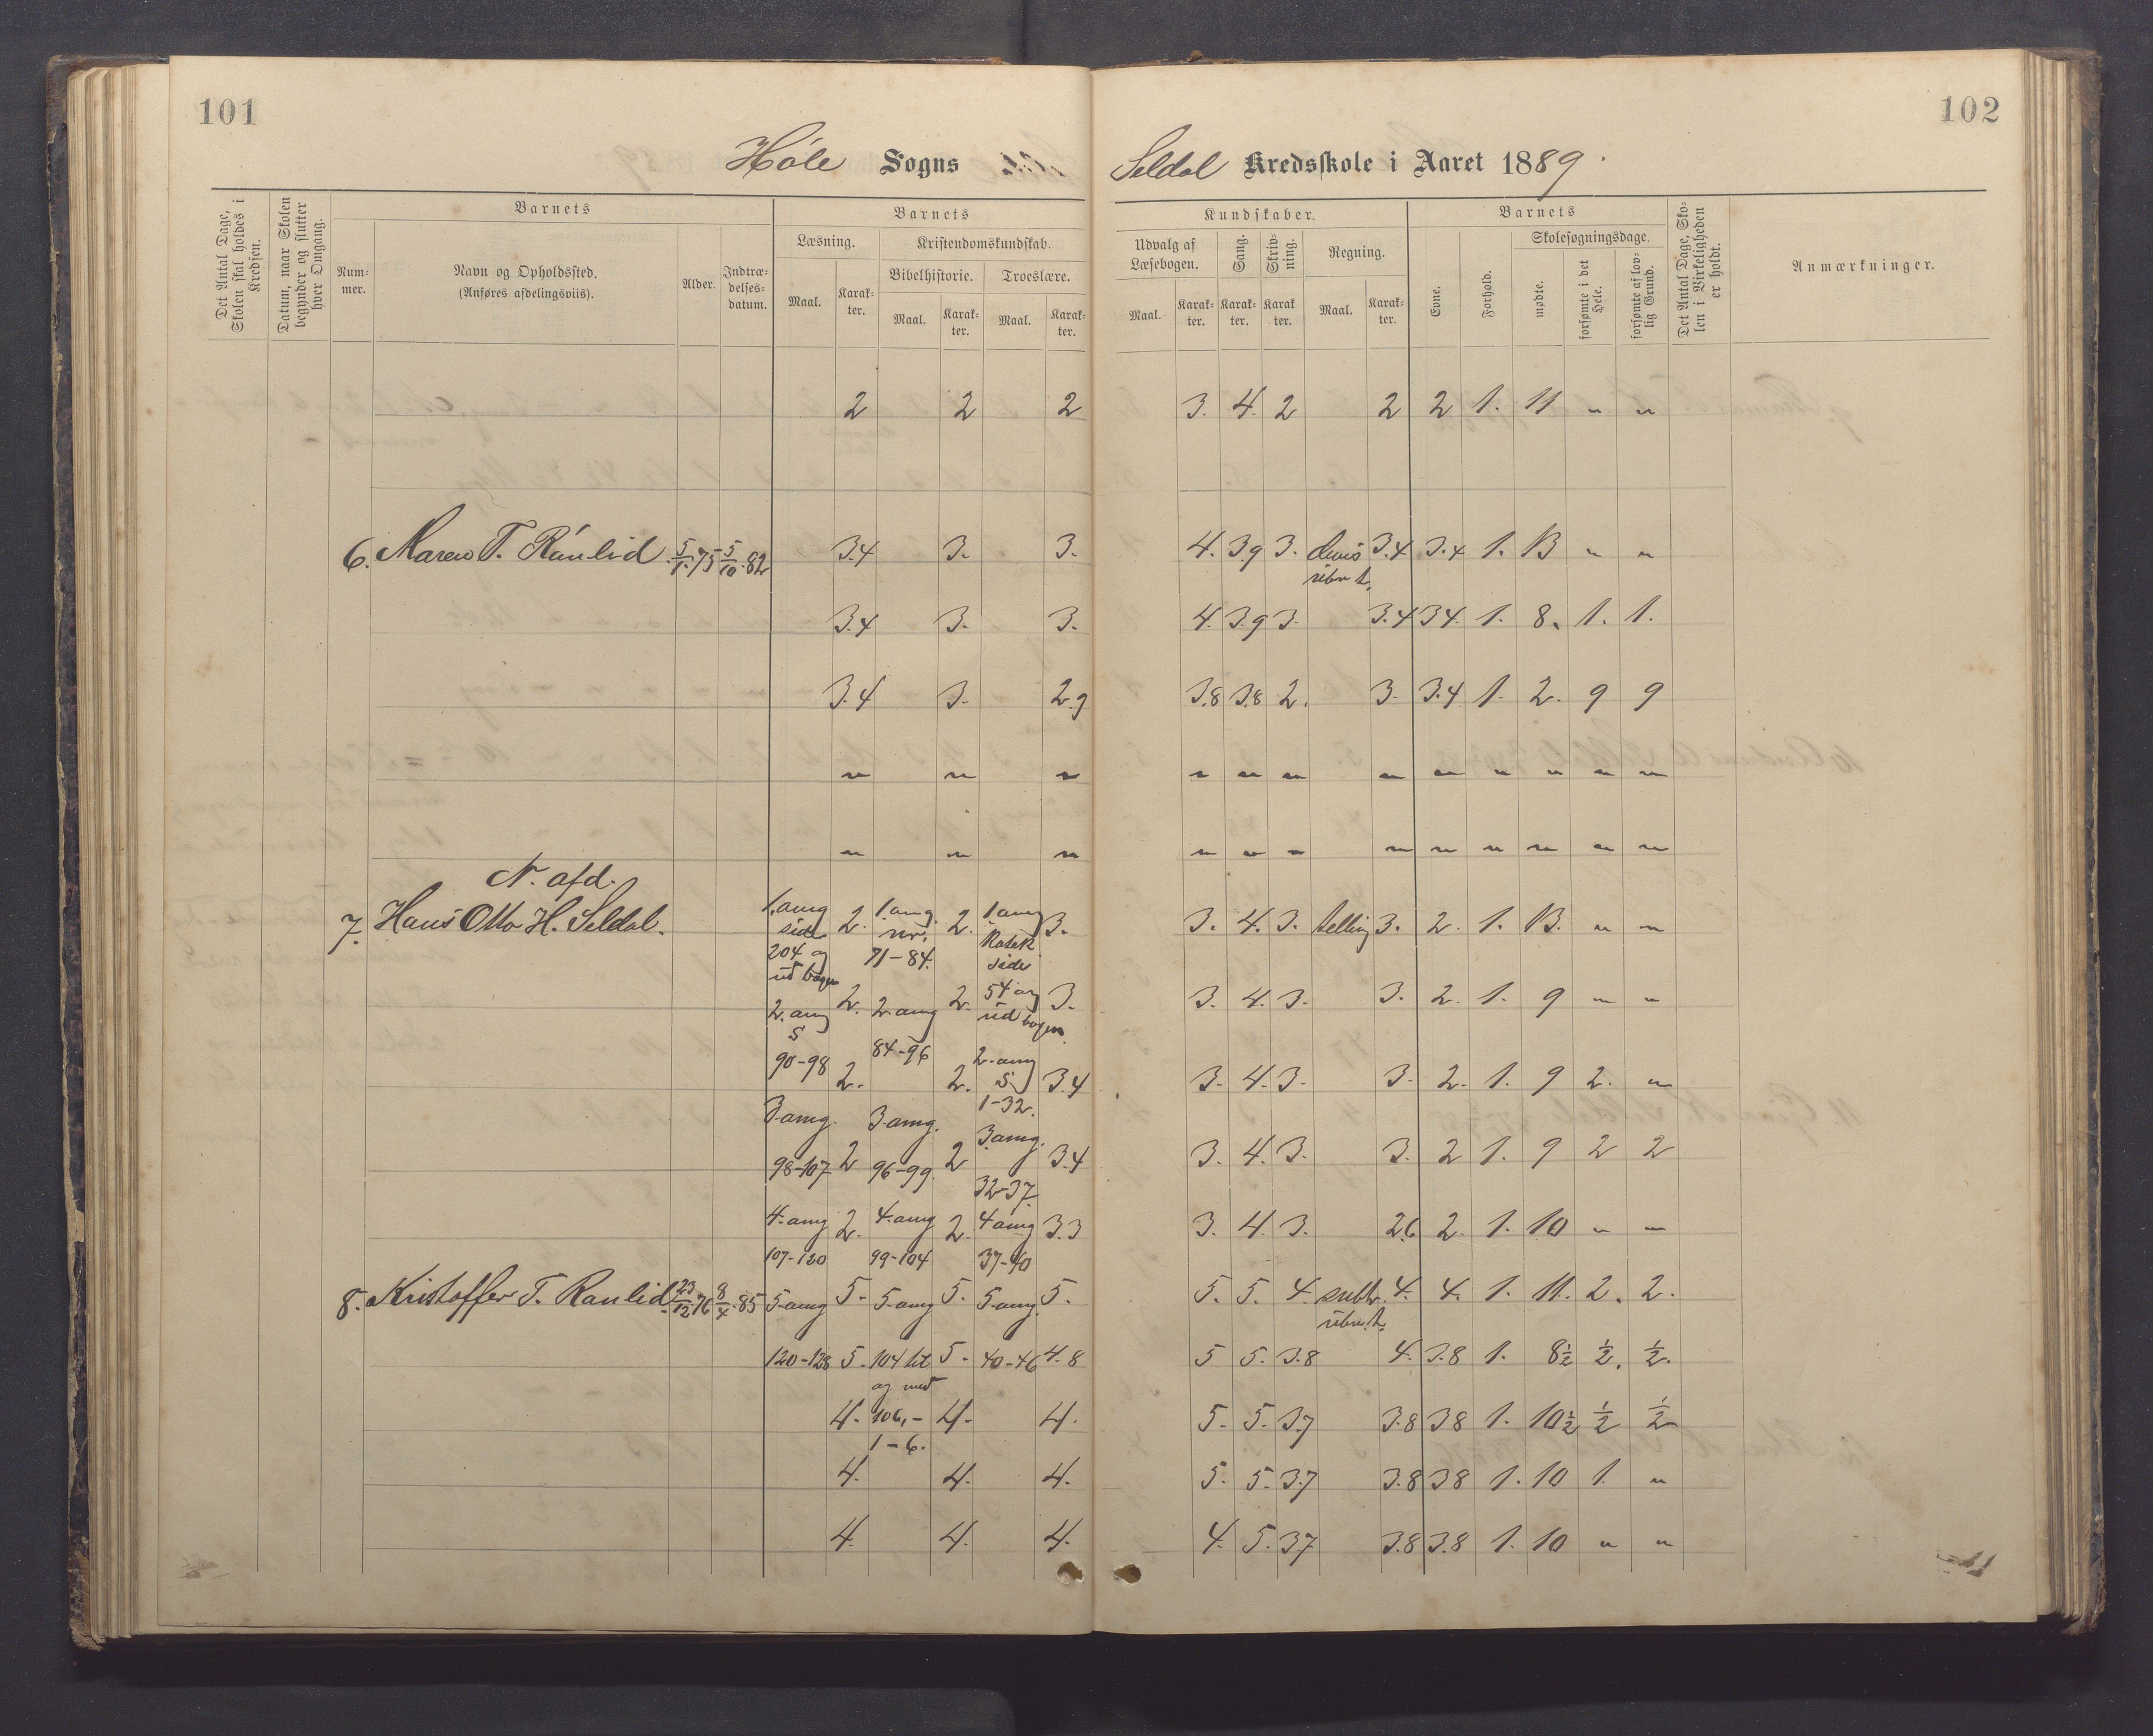 101
102
Høle Sogns
Seldal Kredsskole i Aaret 1889.
Det Antal Dage, Skolen skal holdes i Kredsen.
Datum, naar Skolen begynder og slutter hver Omgang.
Barnets
Num-
mer.
Navn og Opholdssted.
(Anføres afdelingsviis).
Alder.
Indtræ-
delses-
datum.
Barnets
Læsning.
Kristendomskundskab.
Bibelhistorie. Troeslære.
Maal. Karak-
ter.
Maal. Karak-
ter.
Maal. Karak-
ter.
Kundskaber.
Udvalg af
Læsebogen.
Sang.
Skriv-
ning.
Regning.
Maal. Karak-
ter.
Karak-
ter.
Karak
ter.
Maal. Karak-
ter.
Barnets
Evne.
Forhold.
Skolesøgningsdage.
mødte.
forsømte i det Hele.
forsømte af lov-
lig Grund.
Det Antal Dage, Sko-
len i Virkeligheden
er holdt.
Anmærkninger.
2 2 2 3. 4. 2 2 2 1. 11 " "
6. Maren T. Ranlid 5/1.75 5/10.82 3.4 3. 3. 4. 3.9 3. divis 3.4 3.4 1. 13 " "
3.4 3. 3. 4. 3.9 3. 3.4 3.4 1. 8. 1. 1.
3.4 3. 2.9 3.8 3.8 2. 3. 3.4 1. 2. 9 9
" " " " " " " " " " " "
" " " " " " " " " " " "
N. afd.
7. Hans Otto H. Seldal. 1. omg side 204 og ud bogen 2. 1. omg. nr. 71-84. 2. 1. omg Katek side 54 og ud bogen. 3. 3. 4. 3. telling 3. 2. 1. 13. " "
2. omg S 90-98 2. 2. omg 84-96 2. 2. omg S. 1-32. 3. 3. 4. 3. 3. 2. 1. 9 " "
2. 2. 3.4 3. 4. 3. 3. 2. 1. 9 2. "
3. omg. 98-107 2 3. omg. 96-99. 2 3 omg. 32-37. 3.4 3. 4. 3. 3. 2 1. 9 2 2
4. omg 107-120 2. 4. omg 99-104 2. 4 omg 37-40 3.3 3. 4. 3. 2.6 2. 1. 10 " "
8. Kristoffer T. Ranlid. 23/12.76 8/4.85 5. omg 5. 5. omg 5. 5. omg. 5. 5. 5. 4. subtr. 4. 4. 1. 11. 2. 2.
120-128 5. 104 til og med 106,- 1-6. 5. 40-46 4.8 5 5. 3.8 4. 3.8 1. 8½ ½. ½.
4. 4. 4. 5. 5. 3.7 3.8 3.8 1. 10½ ½ ½
4. 4. 4. 5. 5. 3.7 3.8 3.8 1. 10 1. "
4. 4. 4. 4. 5. 3.7 3.8 3.8 1. 10 " "